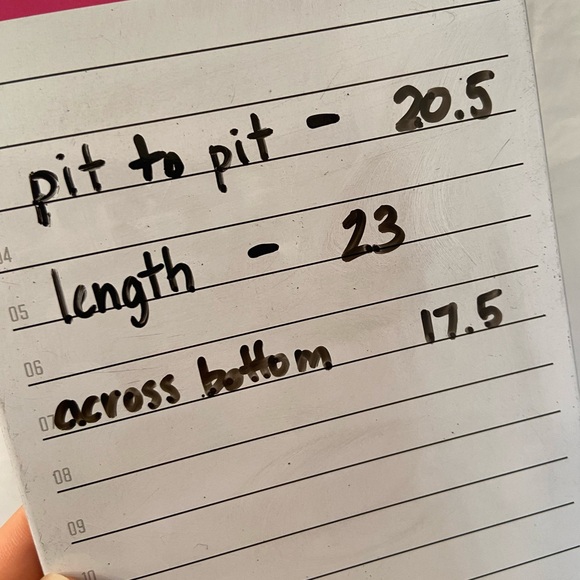 pit to pit - 20.5
04
length - 23
05
06
across bottom 17.5
07
08
09
10